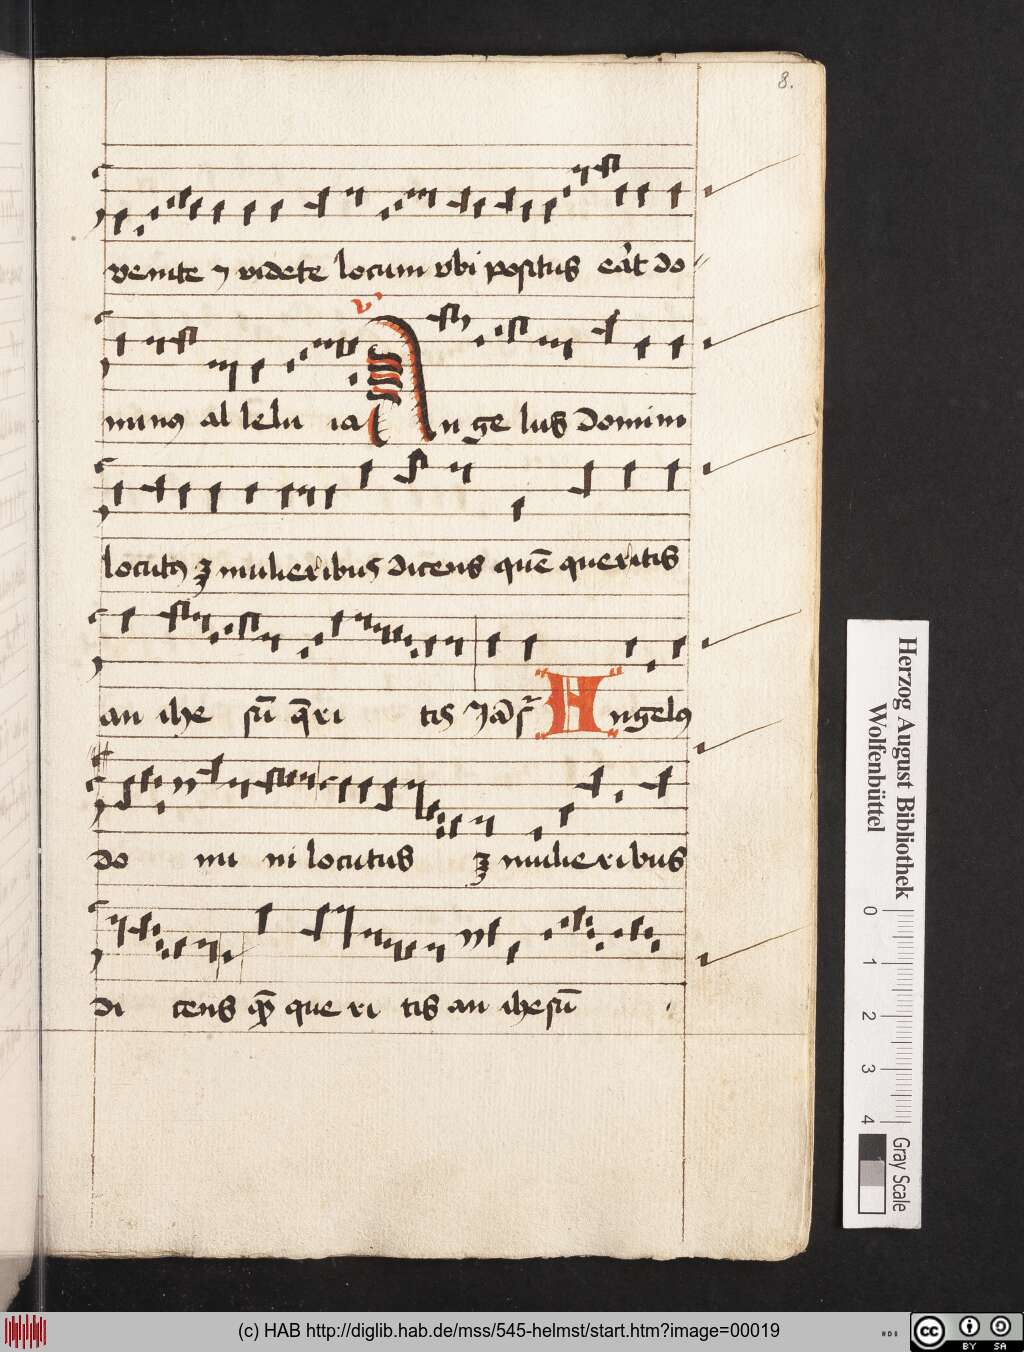 8.
venite ⁊ videte locum vbi positus erat do
minus al lelu ia
v̾
An ge lus domini
locutus est mulieribus dicens quē queritis
an ihe sū q̄ri tis
Angelus
do mi ni locutus est mulieribus
di cens quē que ri tis an ihesū
Herzog August Bibliothek
Wolfenbüttel
0 1 2 3 4
Gray Scale
(c) HAB http://diglib.hab.de/mss/545-helmst/start.htm?image=00019
cc
BY SA